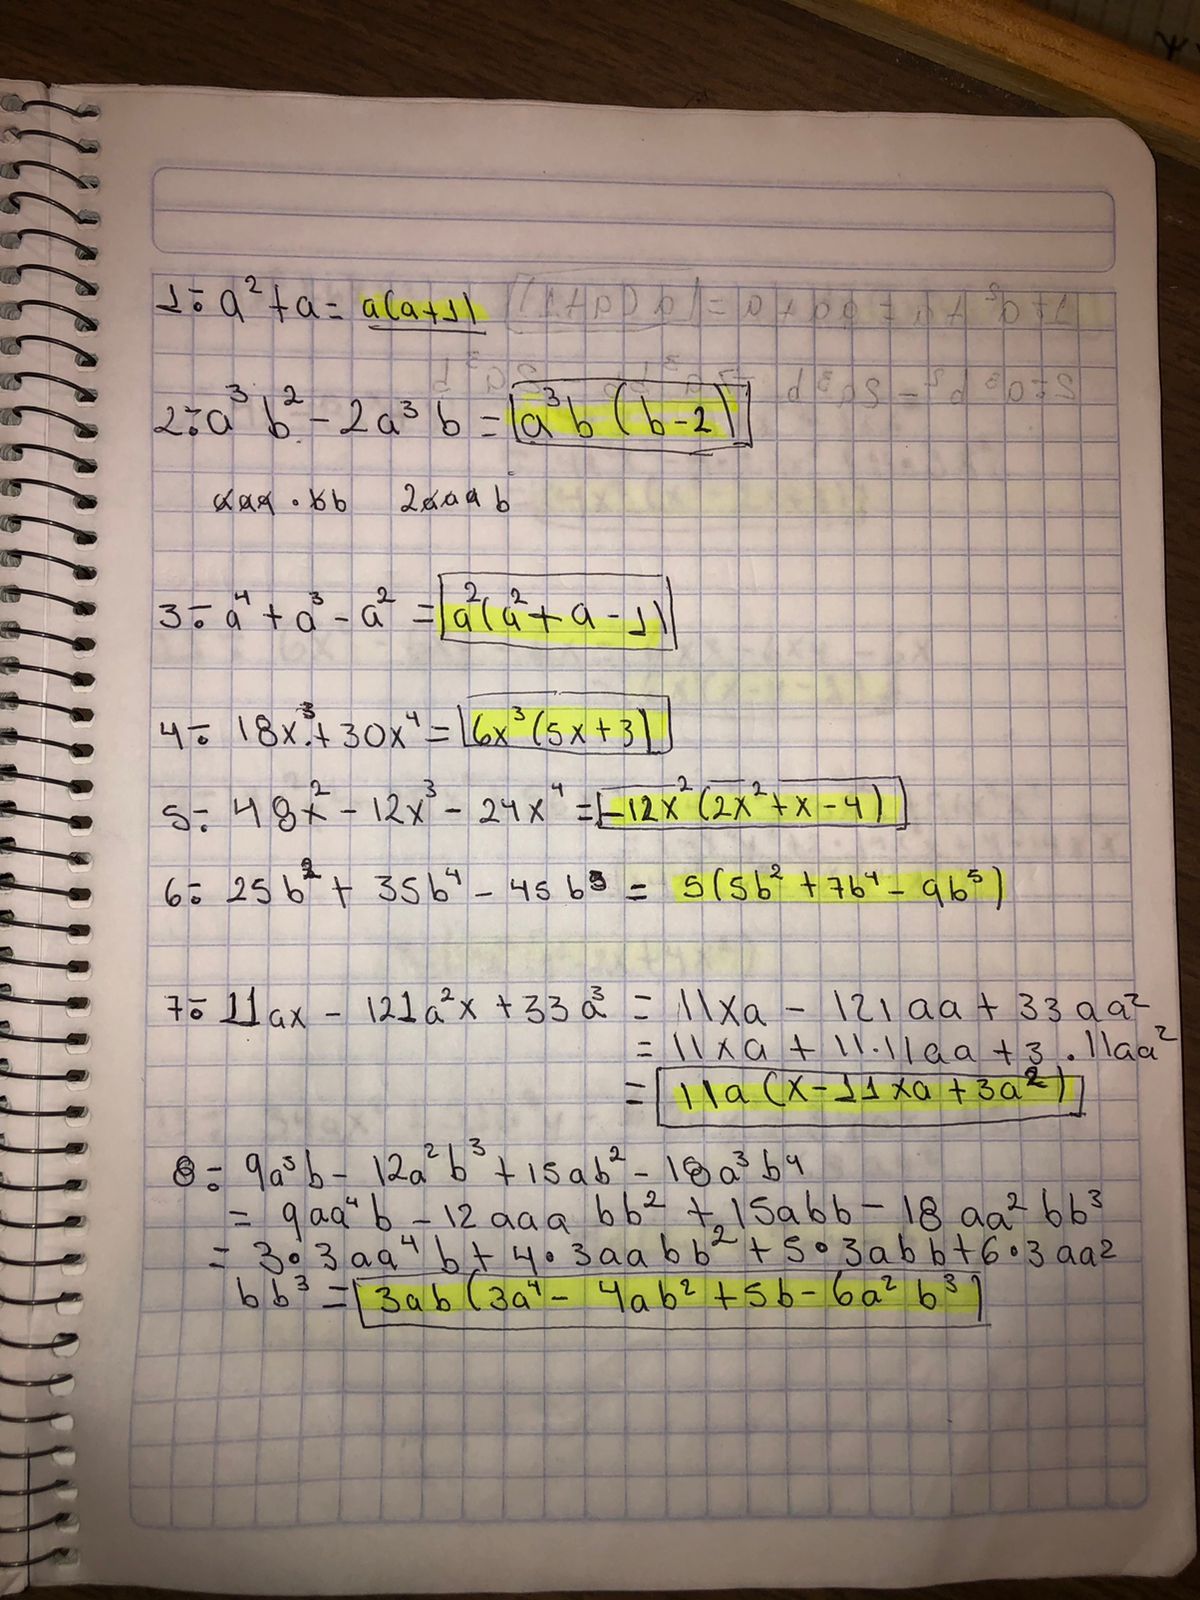 1÷ a² + a = a(a+1)
2÷ a³ b² - 2a³ b = a³ b (b-2)
aaa · bb 2aaa b
3÷ a⁴ + a³ - a² = a²(a² + a - 1)
4÷ 18x³ + 30x⁴ = 6x³(5x + 3)
5÷ 48x² - 12x³ - 24x⁴ = -12x²(2x² + x - 4)
6÷ 25b² + 35b⁴ - 45b⁵ = 5(5b² + 7b⁴ - 9b⁵)
7÷ 11ax - 121a²x + 33a³ = 11xa - 121aa + 33aa²
= 11xa + 11·11aa + 3·11aa²
= 11a (x - 11xa + 3a²)
8÷ 9a⁵b - 12a²b³ + 15ab² - 18a³b⁴
= 9aa⁴b - 12aaa bb² + 15abb - 18 aa² bb³
= 3·3aa⁴b + 4·3aabb² + 5·3abb + 6·3aa²
bb³ = 3ab(3a⁴ - 4ab² + 5b - 6a² b³)